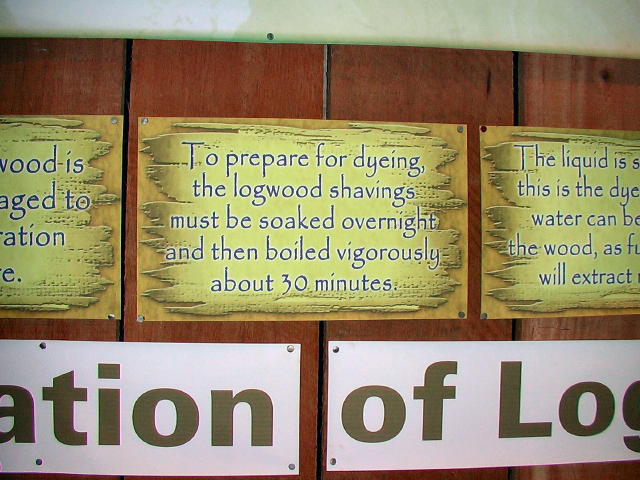 wood is
aged to
ration
e.
To prepare for dyeing,
the logwood shavings
must be soaked overnight
and then boiled vigorously
about 30 minutes.
The liquid is s
this is the dye
water can be
the wood, as fu
will extract
ation of Log